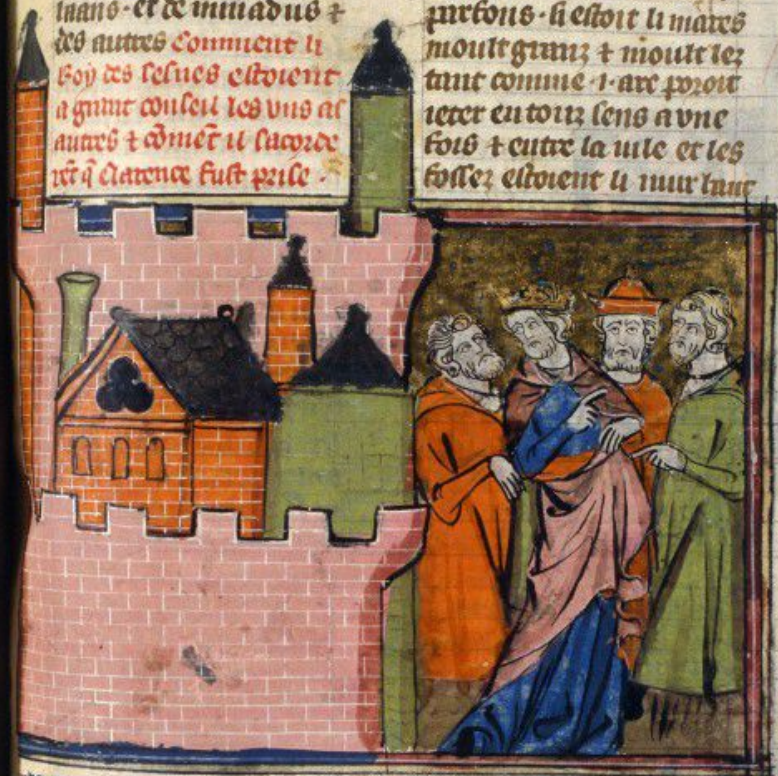 mans · et de miuadus ⁊
des autres Comment li
Roy des sesnes estoient
a grant conseil les vns as
autres ⁊ cōmēt il sacorde
rēt q̄ Clarence fust prise ·
parfons · si estoit li mares
moult granz ⁊ moult lez
tant comme · i · arc poroit
ieter en touz sens a vne
fois ⁊ entre la uile et les
fossez estoient li mur haut